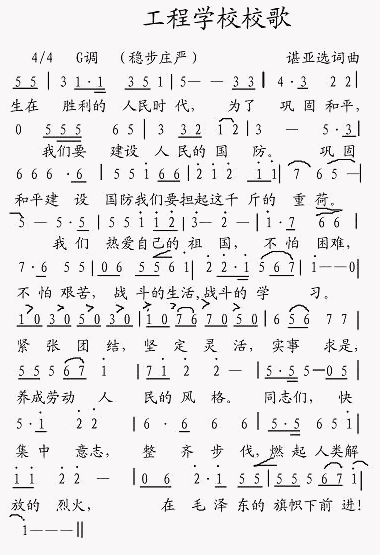 工程学校校歌
4/4 G调 （稳步庄严） 谌亚选词曲
5 5 | 3 1·1 3 5 1 | 5 — — 3 3 | 4·3 2 2 |
生在 胜利的 人民时代， 为了 巩固和平，
0 5 5 5 6 5 | 3 3 3 1 2 | 3 — 5·3 |
我们要 建设 人民的国 防。 巩固
6 6 6·6 | 5 5 1 6 6 | 2 1 2 1 1 | 7 6 5 — |
和平建 设 国防我们要担起这千斤的重荷。
5 — 5·5 | 5 5 1 1 2 | 3 2 — 2 | 1·7 6 6 |
我们 热爱自己的祖国， 不怕困难，
7·6 5 5 | 0 6 5 5 6 1 | 2 2·1 5 6 7 | 1 — — 0 |
不怕艰苦，战斗的生活,战斗的学 习。
1 0 3 0 5 0 3 0 | 1 0 7 6 7 0 5 0 | 6 5 6 7 7 |
紧张团结，坚定灵活，实事 求是，
5 5 5 6 7 1 | 7 1 2 2 — | 6·6 2 2 | 5·5 5 — 0 5 |
养成劳动 人 民的风格。同志们， 快
5·1 2 2 | 6·6 2 2 | 2·3 2 1 | 5·5 6 5 1 |
集中 意志， 整 齐步伐,燃起人类解
1 1 2 2 — | 0 6 2·1 | 5 5 5 5 5 6 7 |
放的 烈火， 在毛泽东的旗帜下前进!
1 — — — ||